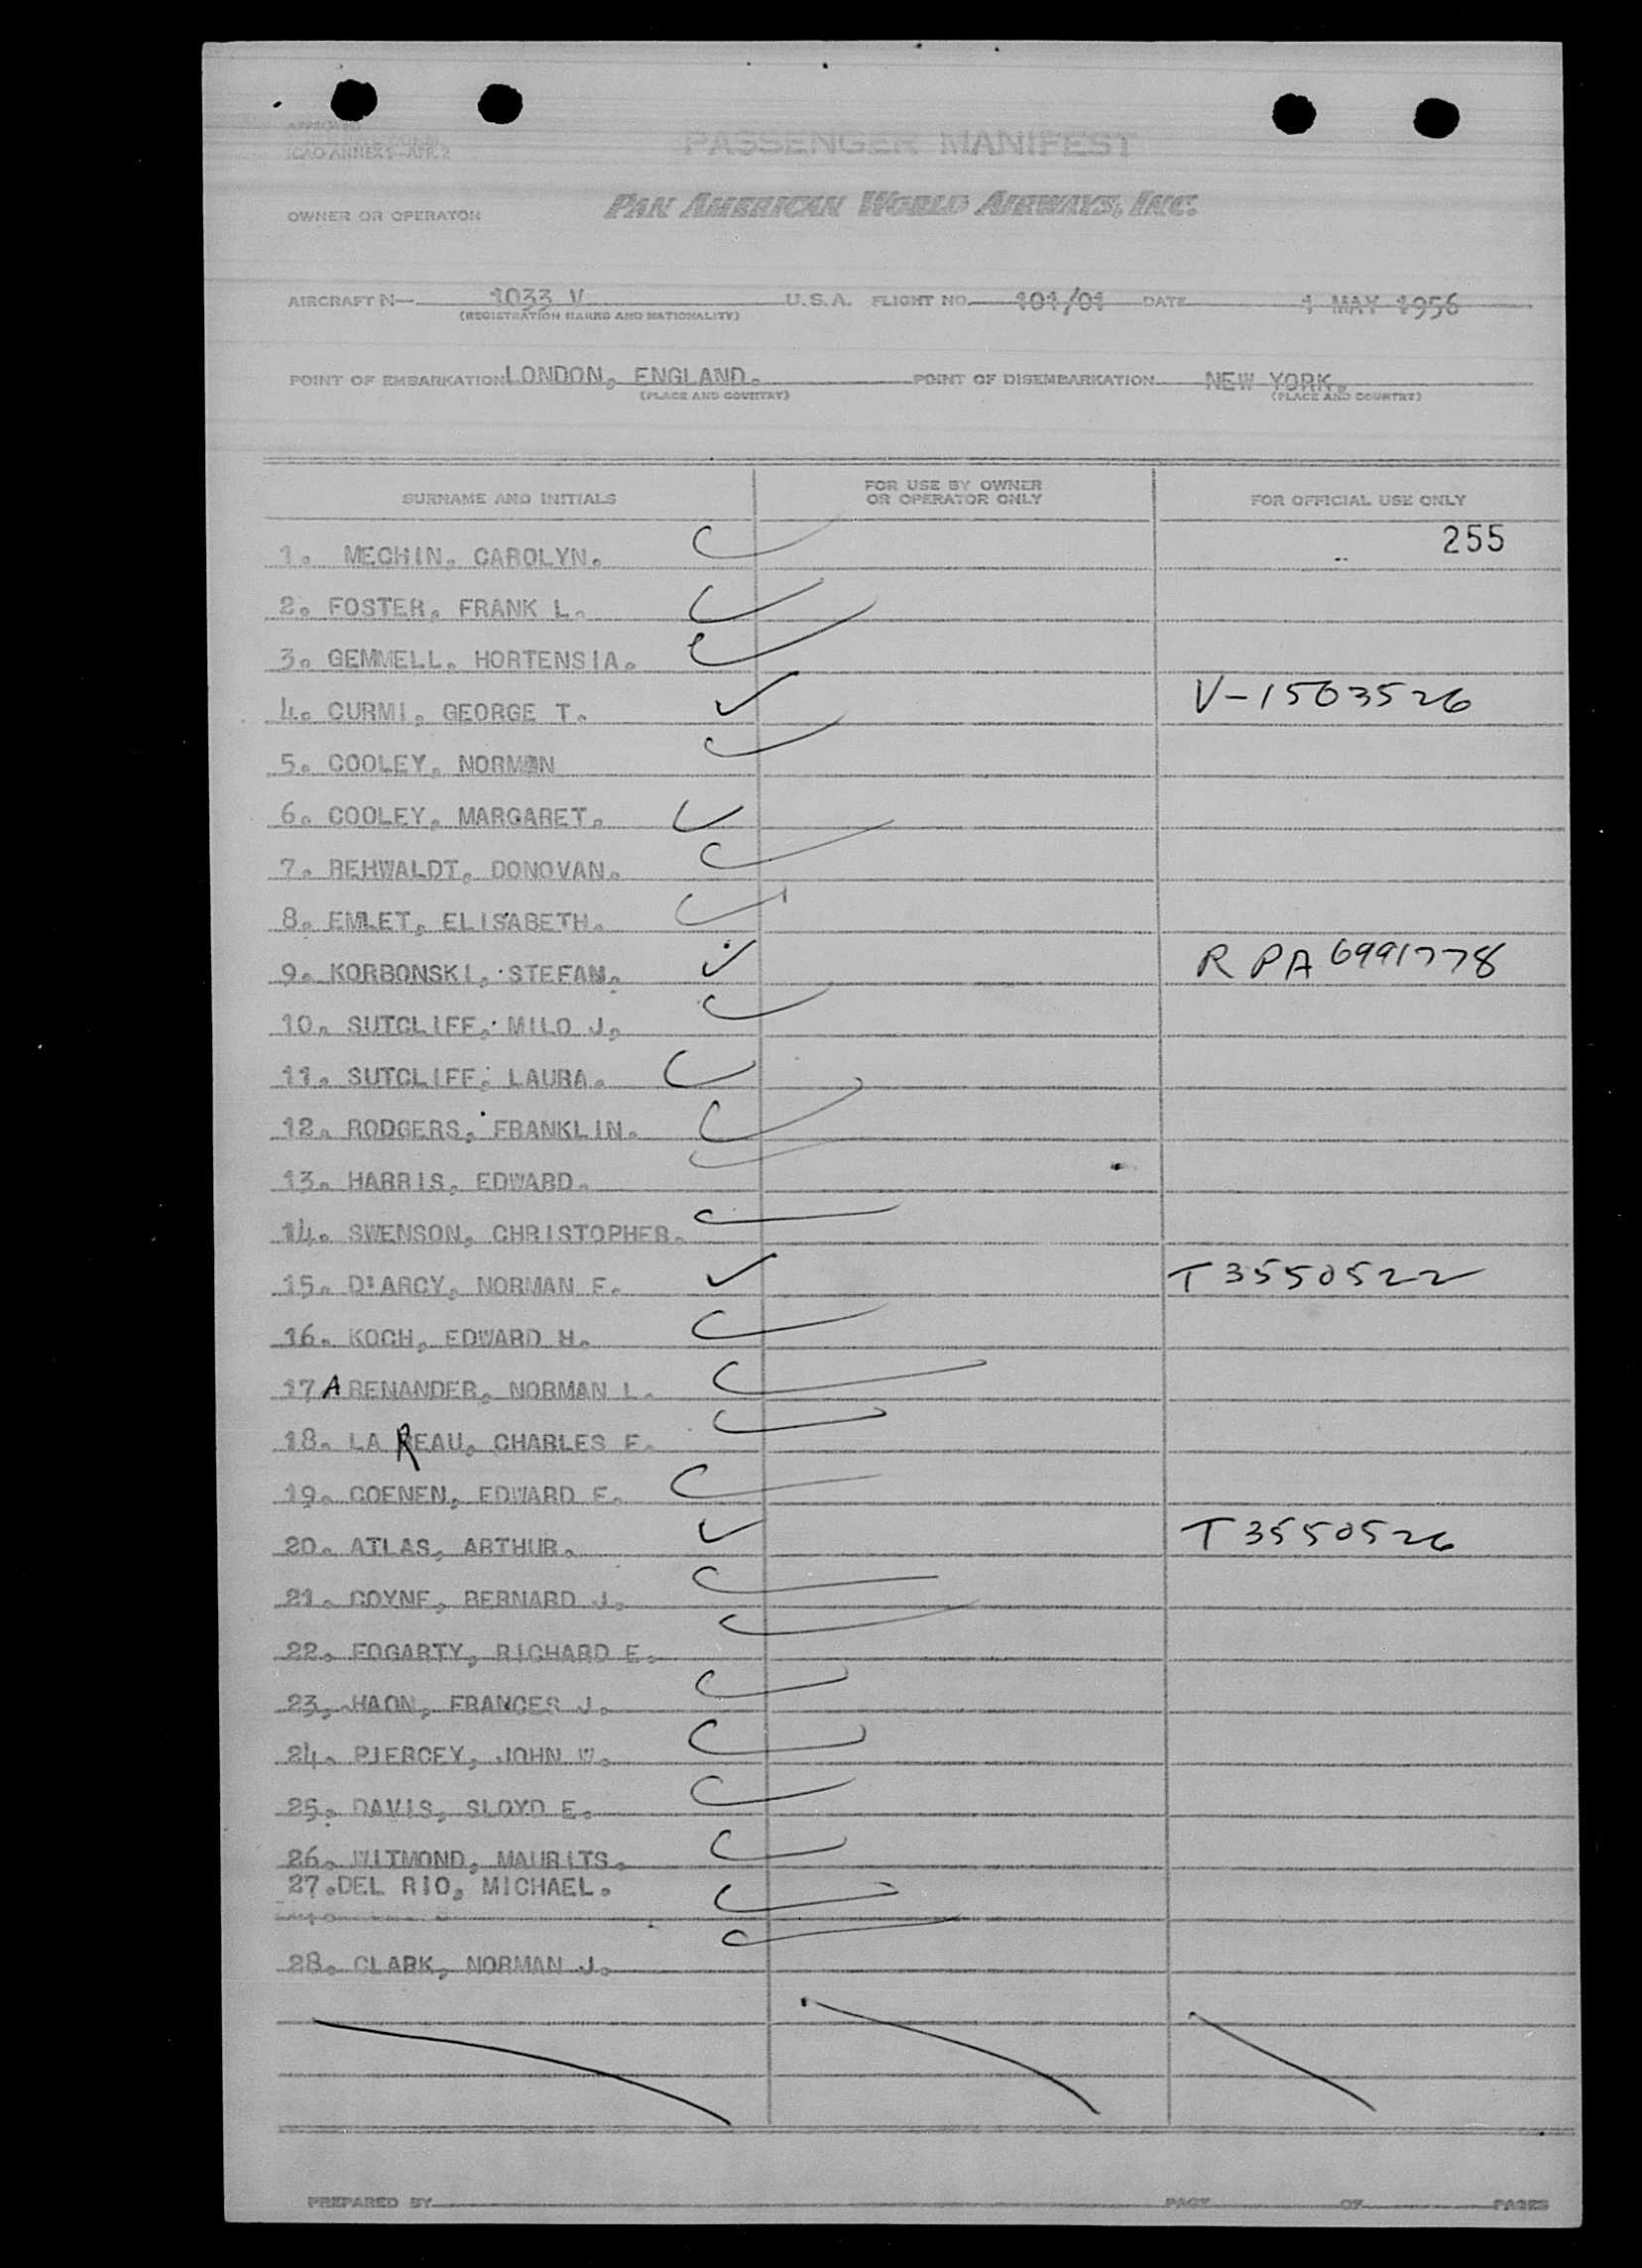 APPROVED
ICAO ANNEX 9-APP. 2
PASSENGER MANIFEST
OWNER OR OPERATOR PAN AMERICAN WORLD AIRWAYS, INC.
AIRCRAFT N- 1033 V U.S.A. FLIGHT NO. 101/01 DATE 1 MAY 1956
(REGISTRATION MARKS AND NATIONALITY)
POINT OF EMBARKATION LONDON, ENGLAND. POINT OF DISEMBARKATION NEW YORK.
(PLACE AND COUNTRY) (PLACE AND COUNTRY)
SURNAME AND INITIALS FOR USE BY OWNER OR OPERATOR ONLY FOR OFFICIAL USE ONLY
255
1. MECHIN, CAROLYN.
2. FOSTER, FRANK L.
3. GEMMELL, HORTENSIA.
4. CURMI, GEORGE T. V-1503526
5. COOLEY, NORMAN
6. COOLEY, MARGARET.
7. REHWALDT, DONOVAN.
8. EMLET, ELISABETH.
9. KORBONSKI, STEFAN. R P A 6991778
10. SUTCLIFF, MILO J.
11. SUTCLIFF, LAURA.
12. RODGERS, FRANKLIN.
13. HARRIS, EDWARD.
14. SWENSON, CHRISTOPHER.
15. D'ARCY, NORMAN F. T 3550522
16. KOCH, EDWARD H.
17 ARENANDER, NORMAN L.
18. LA REAU, CHARLES E.
19. COENEN, EDWARD F.
20. ATLAS, ARTHUR. T 3550526
21. COYNE, BERNARD J.
22. FOGARTY, RICHARD E.
23. HAON, FRANCES J.
24. PIERCEY, JOHN W.
25. DAVIS, SLOYD E.
26. WITMOND, MAURITS.
27. DEL RIO, MICHAEL.
28. CLARK, NORMAN J.
PREPARED BY PAGE OF PAGES